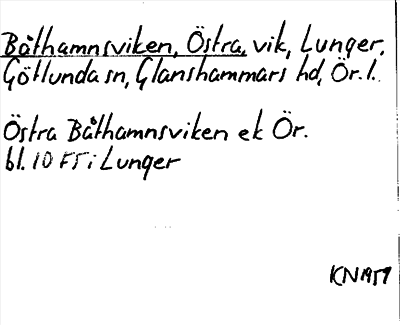 Båthamnsviken, Östra, vik, Lunger,
Götlunda sn, Glanshammars hd, Ör. l.
Östra Båthamnsviken ek Ör.
bl. 10 FT i Lunger
KN 1959